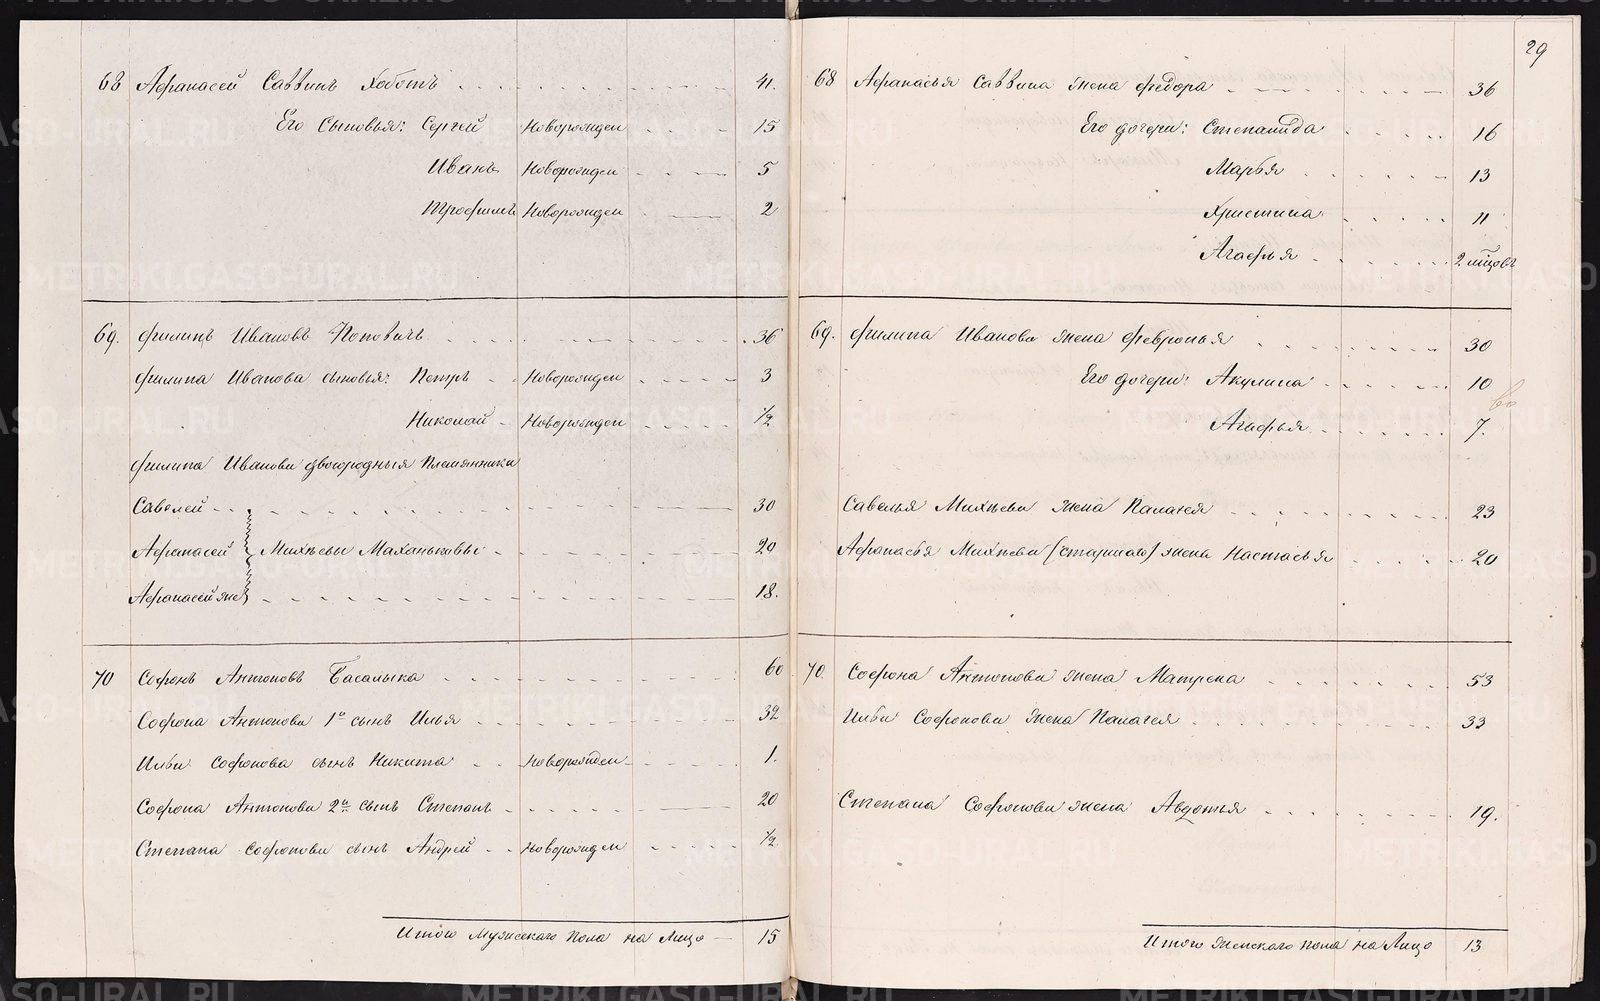 68 Афанасей Саввинъ Хоботъ 41.
Его Сыновья: Сергей Новорожден 15
Иванъ Новорожден 5
Трофимъ Новорожден 2
69. Филипъ Ивановъ Поповичъ 36
Филипа Иванова сыновья: Петръ Новорожден 3
Николай Новорожден 1/2
Филипа Иванова двоюродныя Племянники
Савелей 30
Афанасей Михѣевы Маханьковы 20
Афанасей же 18.
70 Софонъ Антоновъ Басалыка 60
Софона Антонова 1й сынъ Илья 32
Ильи Софонова сынъ Никита Новорожден 1.
Софона Антонова 2й сынъ Степанъ 20
Степана Софонова сынъ Андрей Новорожден 1/2
Итого Мужескаго пола на Лицо 15
29
68 Афанасья Саввина жена Федора 36
Его дочери: Степанида 16
Марья 13
Христина 11
Агафья 2 мѣсцовъ
69. Филипа Иванова жена Февронья 30
Его дочери: Акулина 10
Агафья 7.
Савелья Михѣева жена Палагея 23
Афанасья Михѣева (старшаго) жена Настасья 20
70. Софона Антонова жена Матрена 53
Ильи Софонова жена Палагея 33
Степана Софонова жена Авдотья 19.
Итого женскаго пола на Лицо 13
METRIKI.GASO-URAL.RU